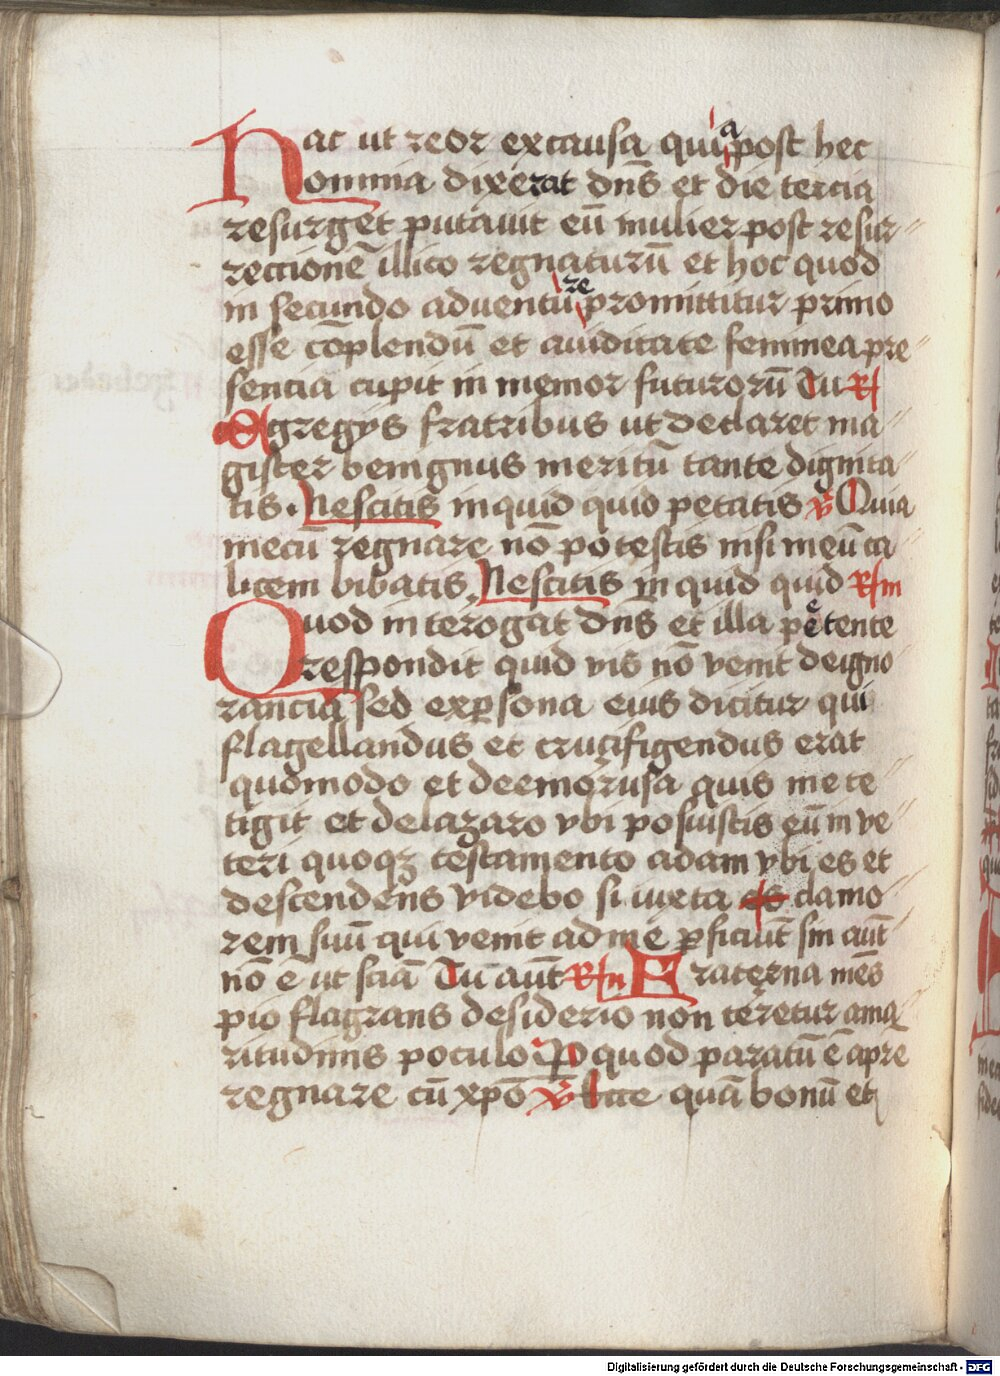 Hac ut reor ex causa quia post hec
omnia dixerat dns̄ et die tercia
resurget putauit eū mulier post resur
rectionē illico regnaturū et hoc quod
in secundo aduentu re promittitur primo
esse cōplendū et auiditate feminea pre
sencia cupit in memor futurorū Tu R
Egregys fratribus ut declaret ma
gister benignus meritū tante dignita
tis. Nescitis inquid quid petatis v̄ Quia
mecū regnare nō potestis nisi meū ca
licem bibatis. Nescitis in quid quid R m
Quod in terogat dns̄ et illa petente
respondit quid vis nō venit de igno
rancia sed ex ꝑsona eius dicitur qui
flagellandus et crucifigendus erat
qūdmodo et de emorusa quis me te
tigit et de lazaro vbi posuistis eū in ve
teri quoqꝫ testamento adam vbi es et
descendens videbo si iuxta es clamo
rem suū qui venit ad me ꝑficiūt sin aūt
nō ē ut sciā Tu aūt R n Eraterna mēs
pio flagrans desiderio non teretur ama
ritudinis poculo P quod paratū ē a pre
regnare cū xp̄o v̄ Ecce quā bonū et
Digitalisierung gefördert durch die Deutsche Forschungsgemeinschaft - DFG